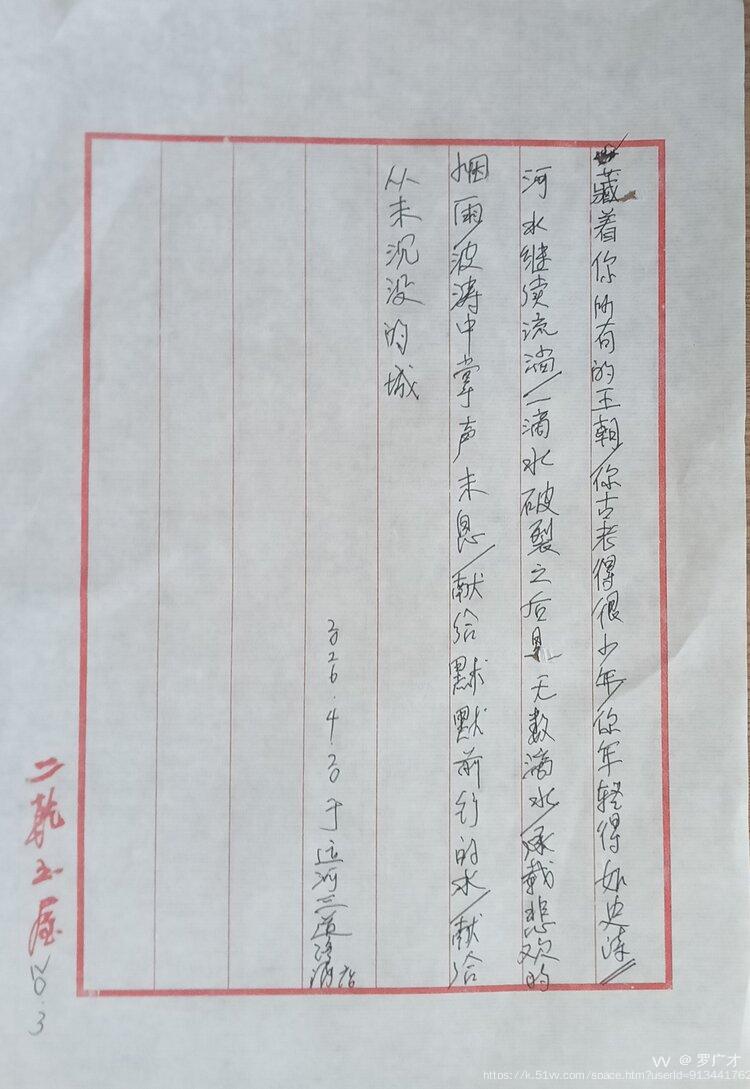 藏着你所有的王朝/你古老得很少年/你年轻得如史诗//
河水继续流淌/一滴水破裂之后是无数滴水/承载悲欢的
烟雨/波涛中掌声未息/献给默默前行的水/献给
从未沉没的城
于运河三道
二乾书屋
@罗广才
https://k.51vv.com/soace.htm?userId=913441762